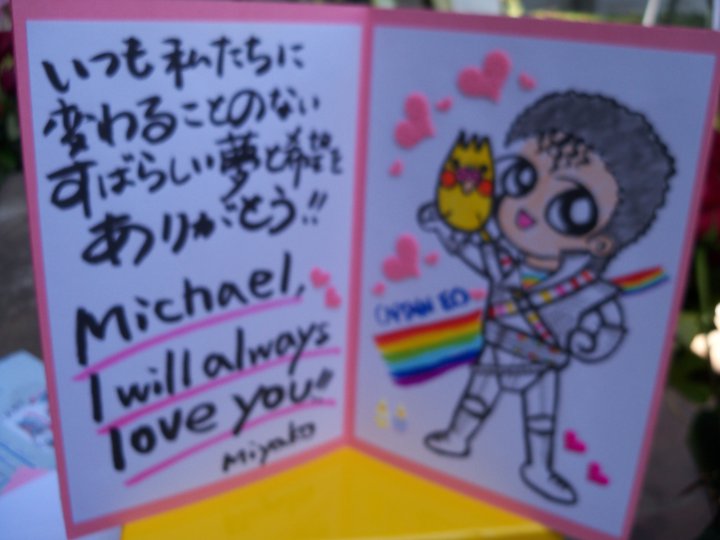 いつも私たちに
変わることのない
すばらしい夢と希望を
ありがとう!!
Michael,
I will always
love you!!
Miyako
CAPTAIN EO